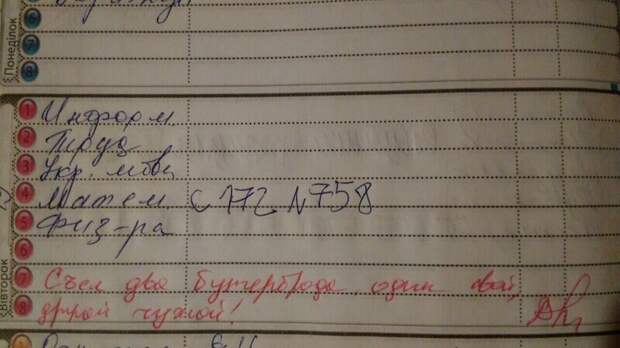 Понеділок
6
7
8
1 Информ
2 Труд
3 Укр. мова
4 Матем. с 172 №758
5 Физ-ра
6
7 Съел два бутерброда, один свой,
8 другой чужой!
Вівторок